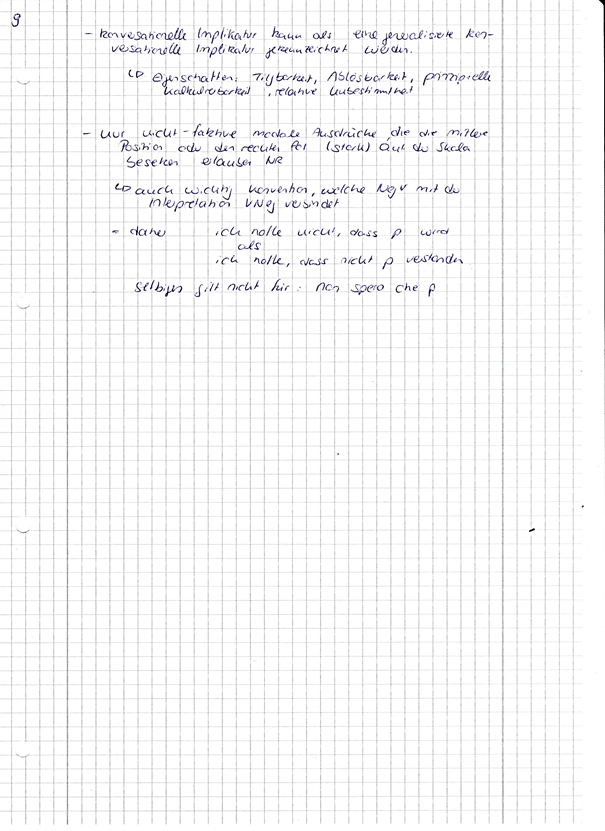 9
- konversationelle Implikatur kann als eine generalisierte kon-
versationelle Implikatur gekennzeichnet werden.
↳ Eigenschaften: Tilgbarkeit, Ablösbarkeit, prinzipielle
Kalkulierbarkeit, relative Unbestimmtheit
- Nur nicht-faktive modale Ausdrücke, die die mittlere
Position oder den rechten Pol (stark) auf der Skala
besetzen erlauben NR
↳ auch wichtig Konvention, welche Neg V mit der
Interpretation V Neg verbindet
- daher ich hoffe nicht, dass p wird
als
ich hoffe, dass nicht p verstanden
Selbiges gilt nicht für: non spero che p